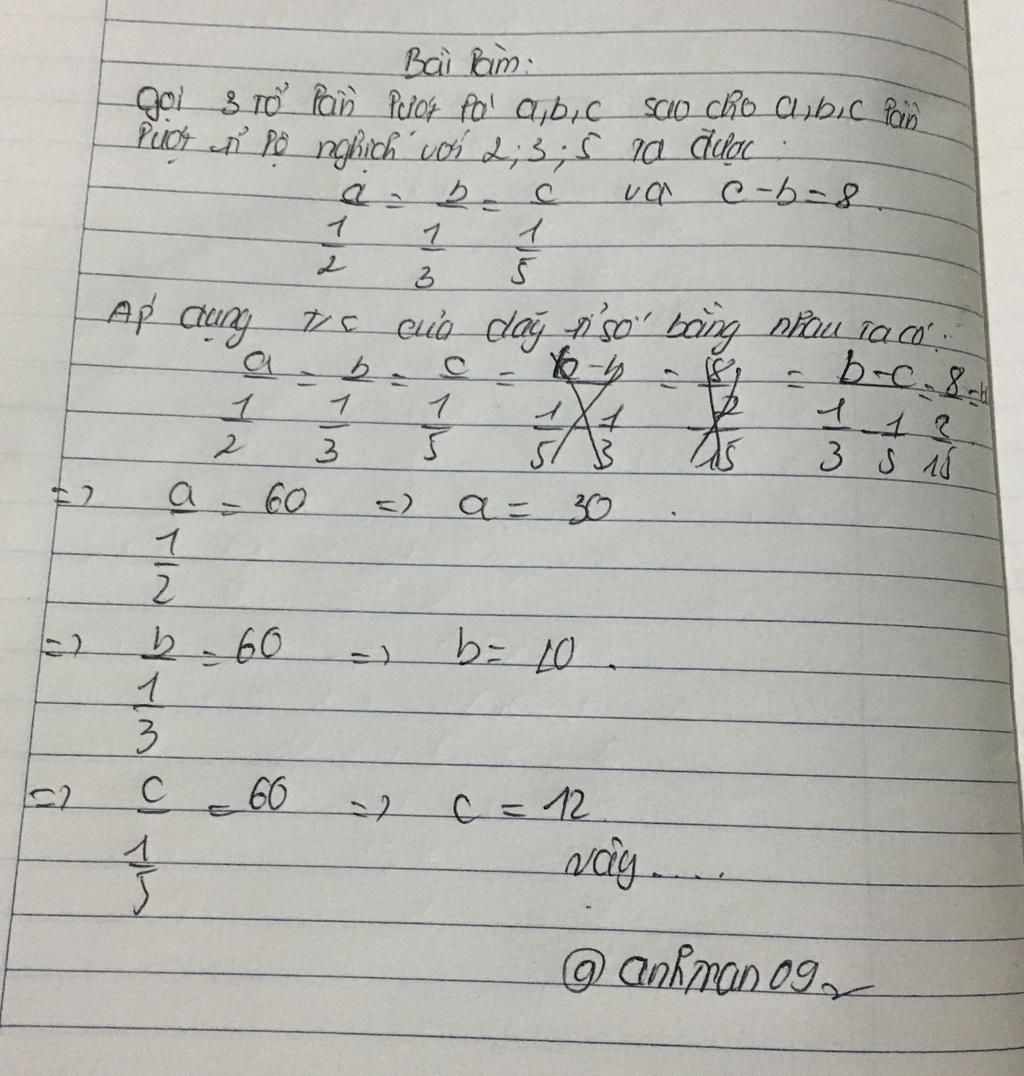 Bài làm:
Gọi 3 tổ lần lượt là a,b,c sao cho a,b,c lần
lượt tỉ lệ nghịch với 2;3;5 ta được:
a/(1/2) = b/(1/3) = c/(1/5) và c-b=8.
Áp dụng T/c của dãy tỉ số bằng nhau ta có:
a/(1/2) = b/(1/3) = c/(1/5) = = = (b-c)/(1/3-1/5) = 8/(2/15) =
=> a/(1/2) = 60 => a = 30.
=> b/(1/3) = 60 => b = 10.
=> c/(1/5) = 60 => c = 12
Vậy.....
@anhman09